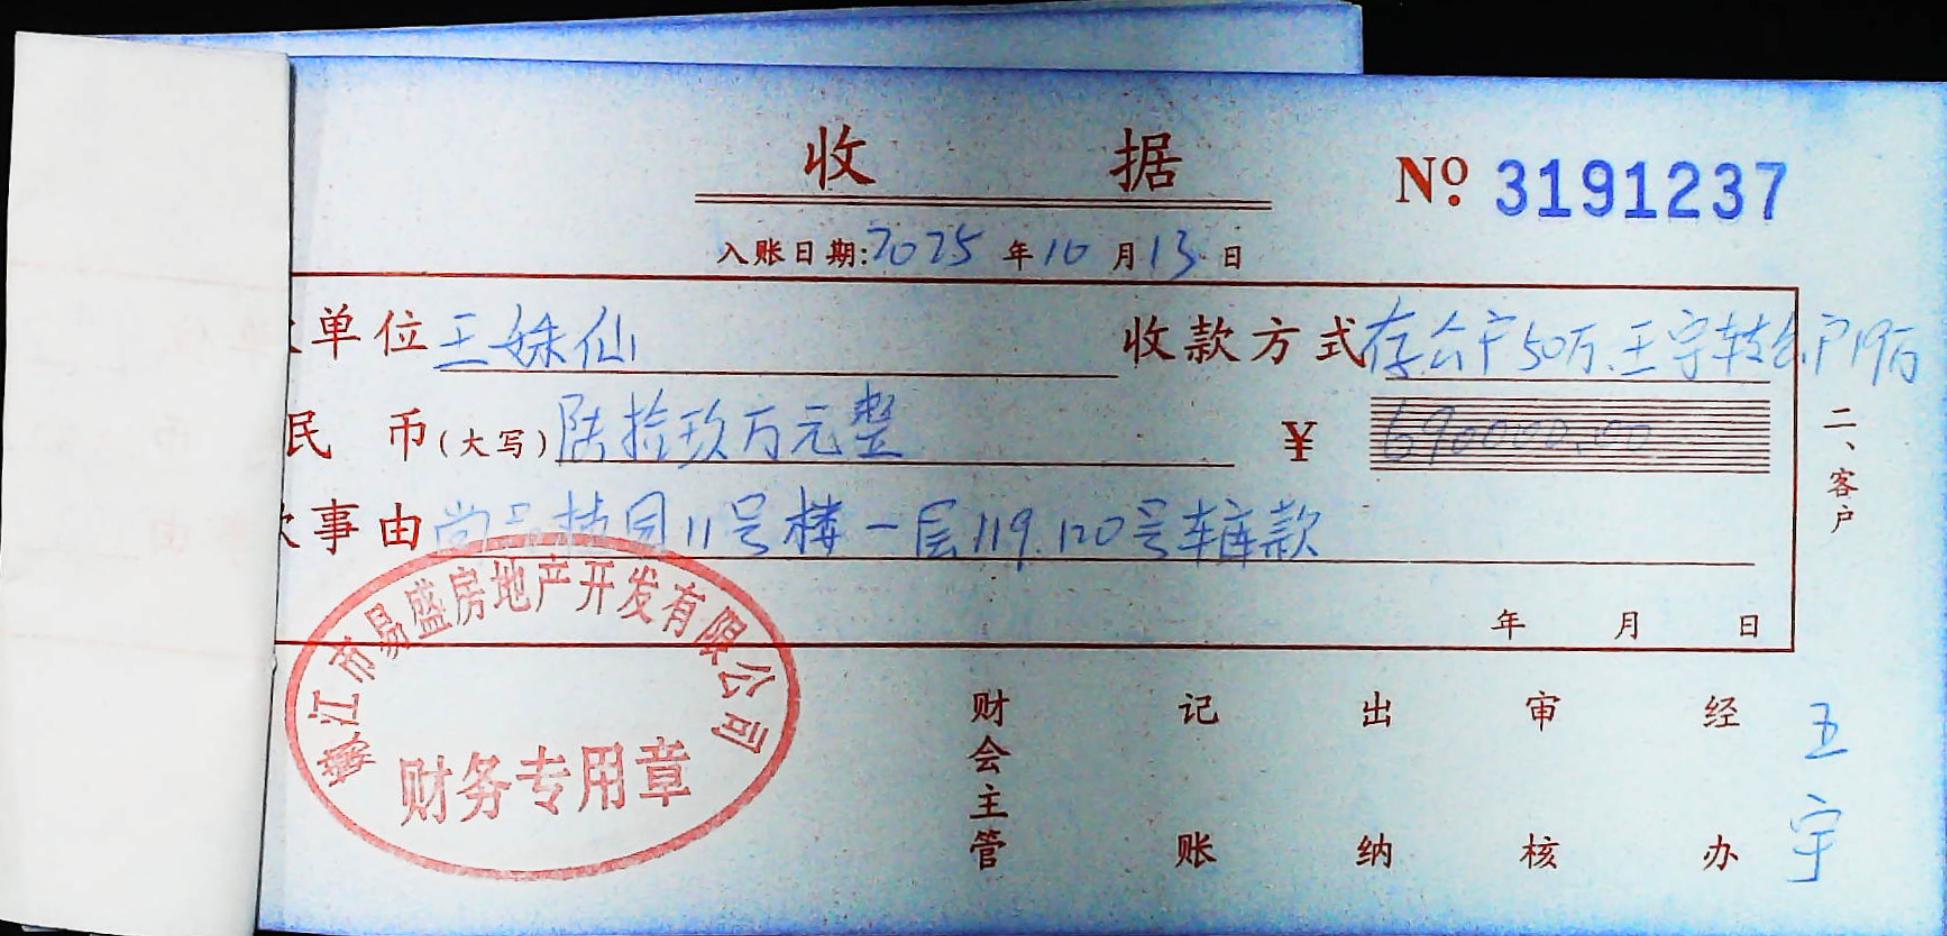 收 据
No 3191237
入账日期:2025年10月13日
单位 王姝仙 收款方式 存公户50万.王宇转公户19万
民 币(大写) 陆拾玖万元整 ¥ 690000.00
事由 尚品桂园11号楼一层119.120号车库款
二、客户
年 月 日
江市易盛房地产开发有限公司
财务专用章
财会主管 记账 出纳 审核 经办 王宇